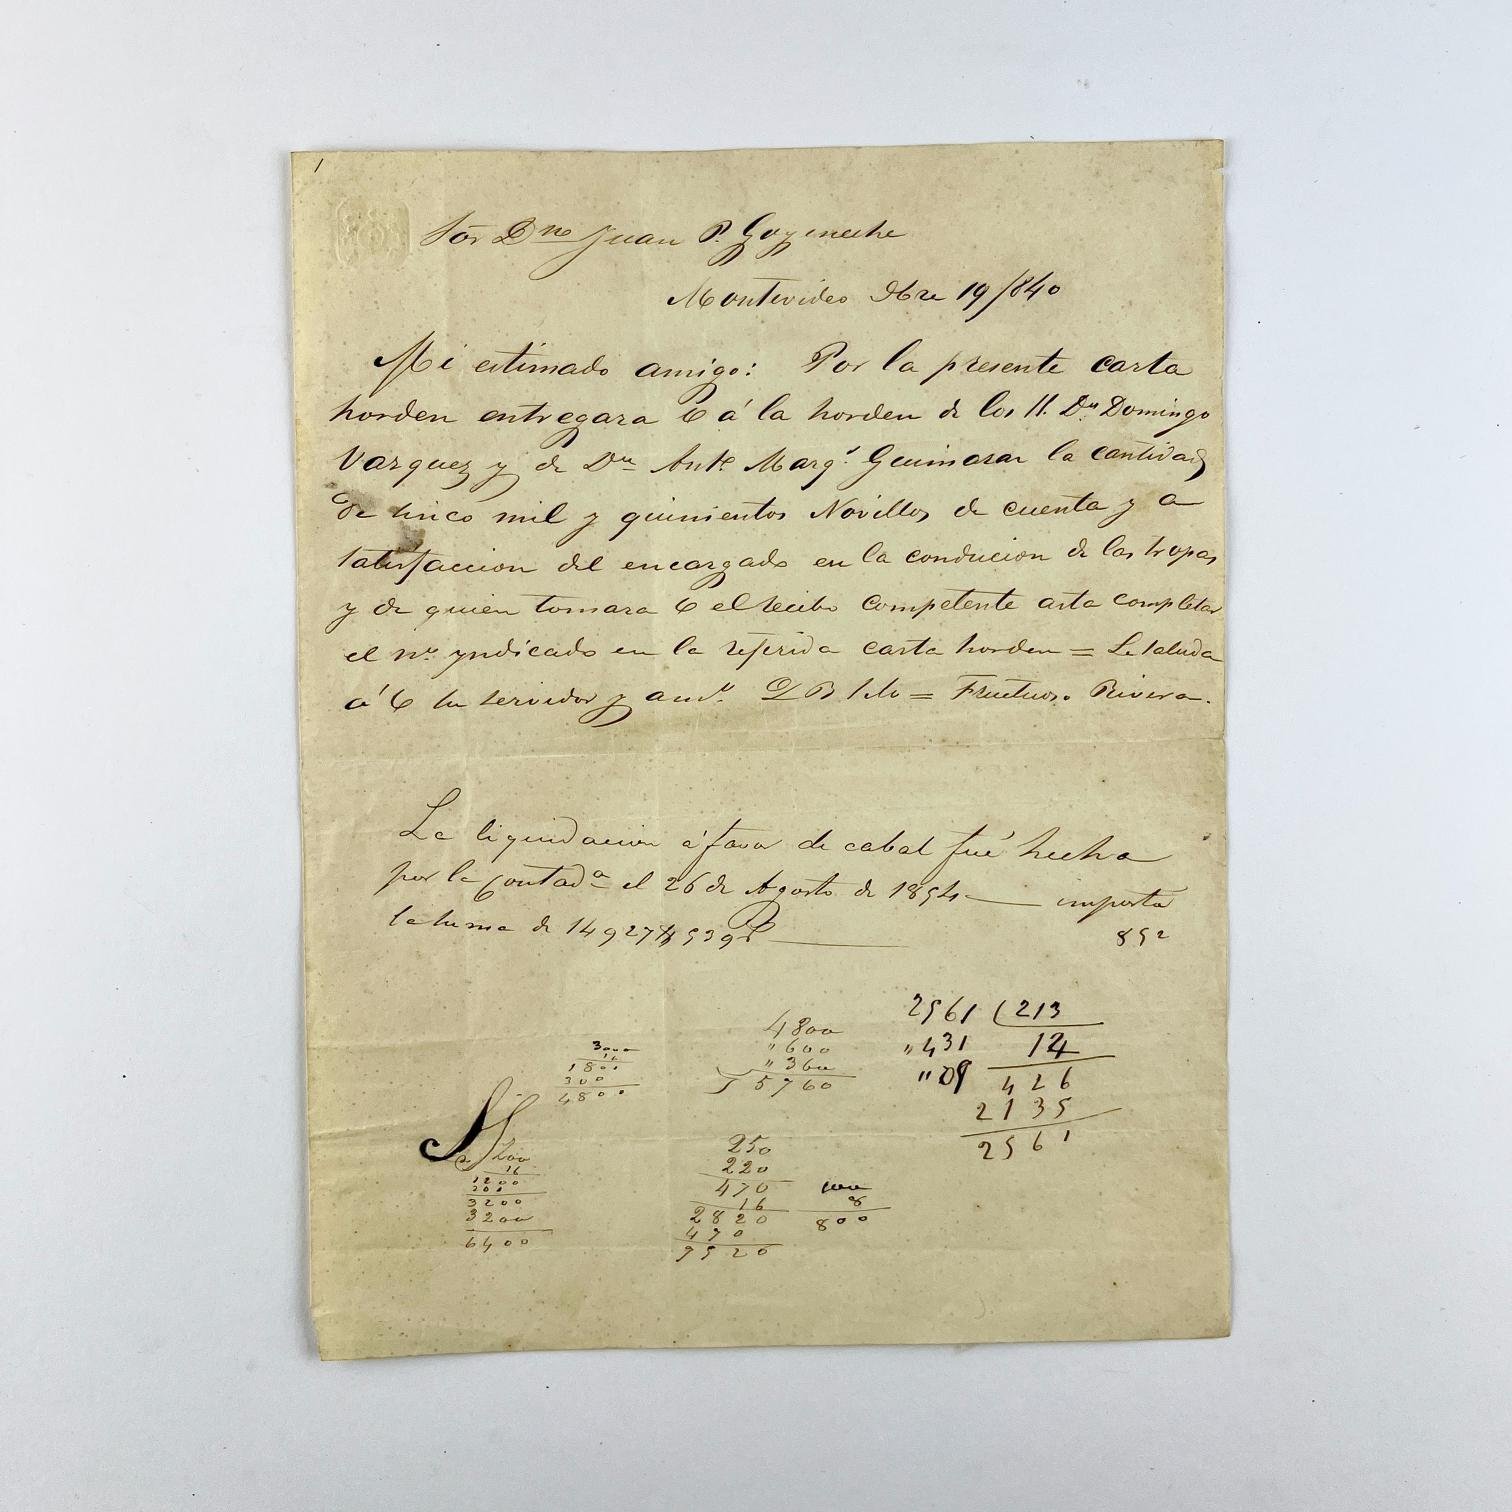 1
Sor Dne Juan P. Goyeneche
Montevideo 9bre 19/840
Mi estimado amigo: Por la presente carta
horden entregara á la horden de los SS. Dn Domingo
Vazquez y de Dn Anto Marqs. Guimaran la cantidad
de sinco mil y quinientos Novillos de cuenta y a
satisfaccion del encargado en la conducion de las tropas
y de quien tomara el recibo competente asta completar
el no. yndicado en la referida carta horden = Le saluda
á su servidor y amo. Q B S M = Fructuoso Rivera.
La liquidacion á favor de Cabal fué hecha
por la Contada el 26 de Agosto de 1854 — importa
la suma de 14927
852
3000
16
1800
300
4800
4800
" 600
" 360
5760
2561 ( 213
" 431 12
" 09 426
2135
2561
200
16
1200
200
3200
3200
6400
250
220
470
16
2820
470
7520
100
8
800